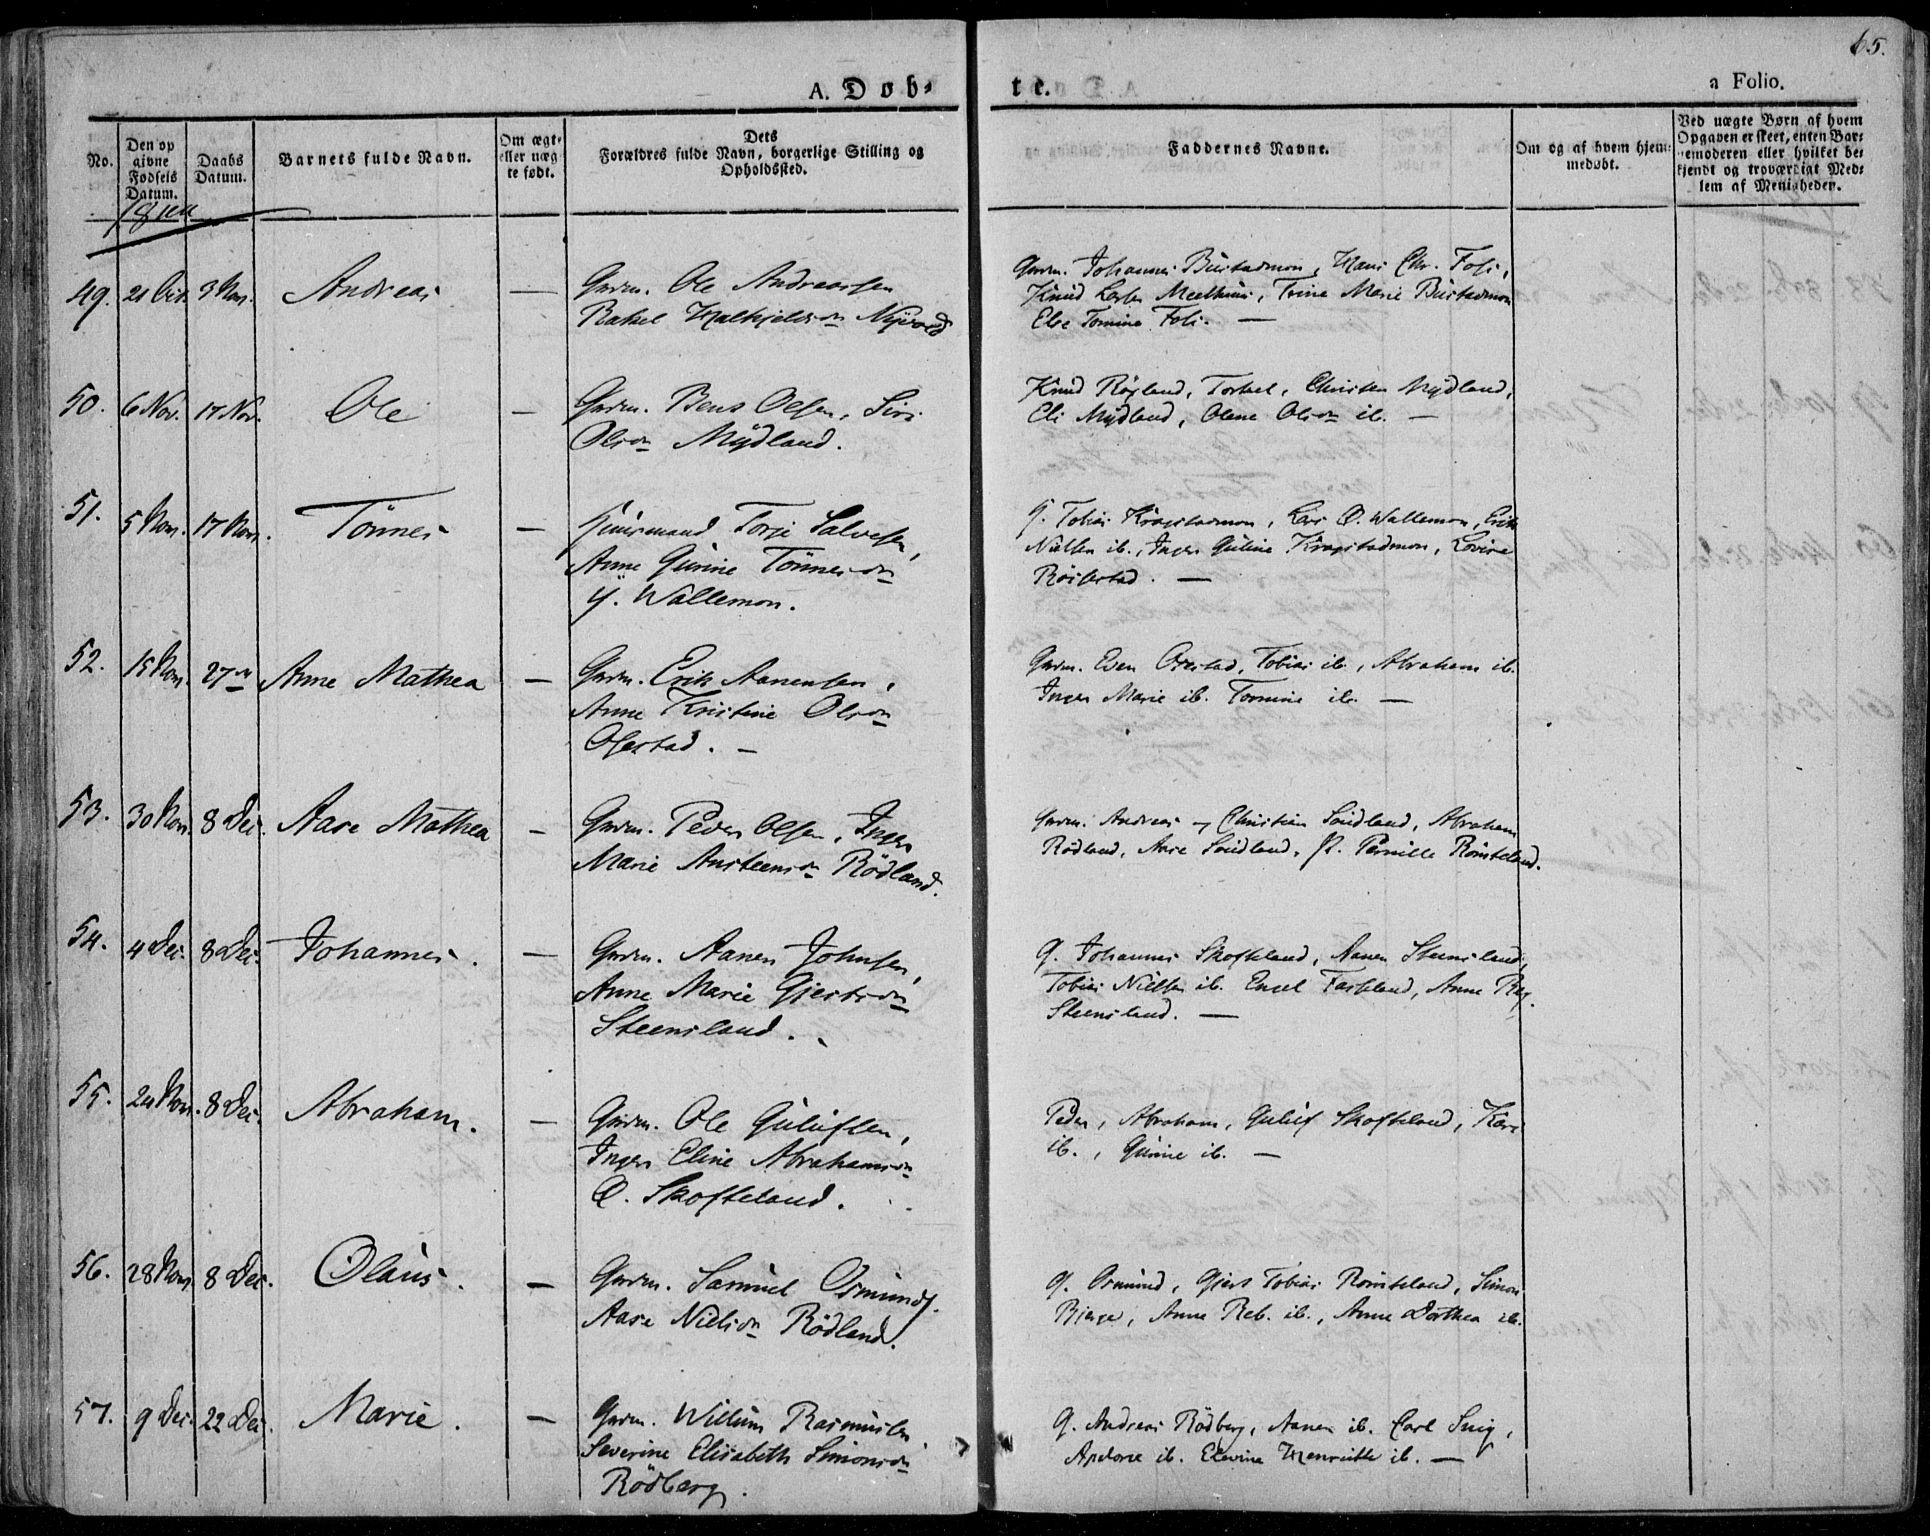 65.
A. Døb-
te.
a Folio.
No.
Den op
givne
Fødsels
Datum.
Daabs
Datum.
Barnets fulde Navn.
Om ægte
eller uæg
te født.
Dets
Forældres fulde Navn, borgerlige Stilling og
Opholdssted.
Faddernes Navne.
Om og af hvem hjem-
medøbt.
Ved uægte Børn af hvem
Opgaven er skeet, enten Bar-
nemoderen eller hvilket be-
kjendt og troværdigt Med-
lem af Menigheden.
49. 21 Oct. 3 Nov. Andreas — Gardm. Ole Andreassen
Rakel
Gaardm. Johannes Bustadmon, Hans Chr. Foss,
Knud Meelhuus, Trine Marie Bustadmon
Else Tomine Foss. —
50. 6 Nov. 17 Nov. Ole — Gardm. Bent Olsen, Siri
Olsdn Mydland.
Knud Røyland, Torkel, Christen Mydland,
Eli Mydland, Olene Olsdn ib. —
51. 5 Nov. 17 Nov. Tönnes — Huusmand Torje Salvesen,
Anne Gurine Tönnesdn
Y. Wallemon.
G. Tobias Kragstadmon, Lars O. Wallemon, Erik
Nielsen ib., Inger Guline Kragstadmon, Lovise
—
52. 15 Nov. 27 Anne Mathea — Gardm. Erik Aanensen,
Anne Kristine Olsdn
Ofestad. —
Gardm. Even Ofestad, Tobias ib., Abraham ib.
Inger Marie ib. Tomine ib. —
53. 30 Nov. 8 Dec. Aase Mathea — Gardm. Peder Olsen, Inger
Marie Austeensdn Rödland.
Gardm. Andreas Christian Sindland, Abraham
Rödland, Aase Sindland, P. Pernille Römteland.
54. 4 Dec. 8 Dec. Johannes. — Gardm. Aanen Johnsen,
Anne Marie Gjertsdn
Steensland.
G. Johannes Skofteland, Aanen Steensland,
Tobias Nielsen ib. Engel Faskland, Anne Reg.
Steensland. —
55. 24 Nov. 8 Dec. Abraham. — Gardm. Ole Gulufsen,
Inger Eline Abrahamsdn
O. Skofteland.
Peder, Abraham, Guluf Skofteland, Kari
ib., Gurine ib. —
56. 28 Nov. 8 Dec. Olaus. — Gardm. Samuel Osmunds.
Aase Nielsdn Rödland.
G. Osmund, Gjert Tobias Römteland, Simon
Bjerge, Anne Reb. ib., Anne Dorthea ib.
57. 9 Dec. 22 Dec. Marie. — Gardm. Willum Rasmusen
Severine Elisabeth Simonsdn
Rödberg.
G. Andreas Rödberg, Aanen ib. Carl Snig,
ib. Elevine Henriette ib. —